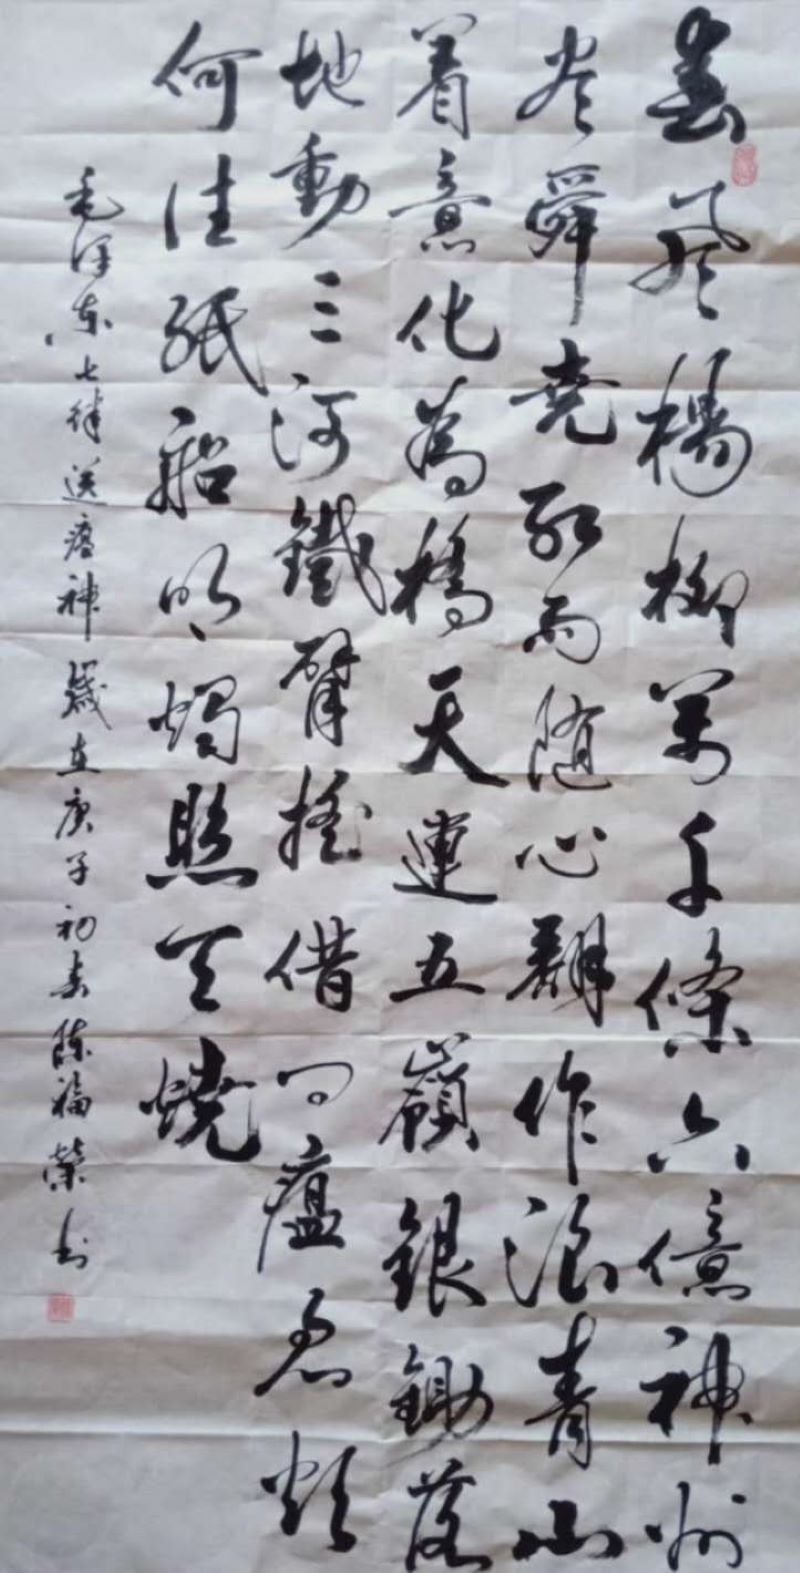 春風楊柳萬千條六億神州
尽舜堯紅雨随心翻作浪青山
着意化為橋天連五嶺銀鋤落
地動三河鐵臂搖借问瘟君欲
何往纸船明燭照天燒
毛泽东七律送瘟神歲在庚子初春陈福榮书